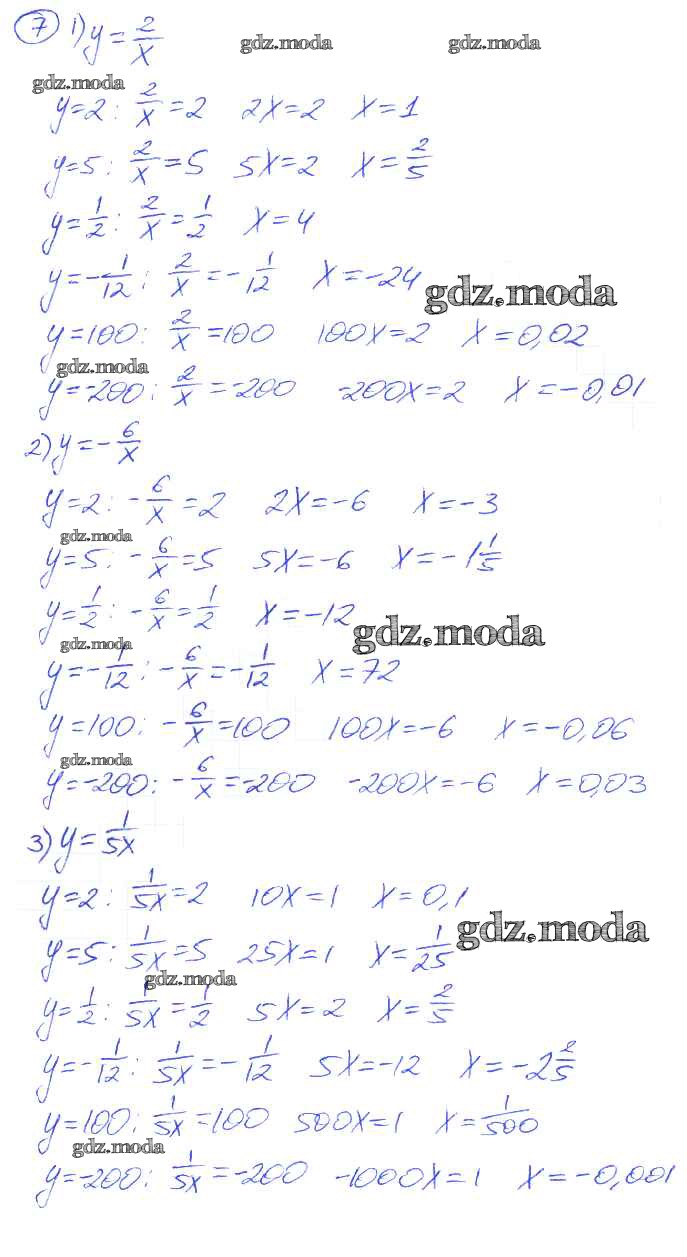 7 1) y = 2/x
gdz.moda gdz.moda
gdz.moda
y=2: 2/x = 2 2x=2 x=1
y=5: 2/x = 5 5x=2 x= 2/5
y= 1/2: 2/x = 1/2 x=4
y=-1/12: 2/x = -1/12 x=-24
gdz.moda
y=100: 2/x =100 100x=2 x=0,02
gdz.moda
y=-200: 2/x =-200 -200x=2 x=-0,01
2) y=-6/x
y=2: -6/x =2 2x=-6 x=-3
gdz.moda
y=5: -6/x =5 5x=-6 x=-1 1/5
y=1/2: -6/x = 1/2 x=-12
gdz.moda
gdz.moda
y=-1/12: -6/x = -1/12 x=72
y=100: -6/x =100 100x=-6 x=-0,06
gdz.moda
y=-200: -6/x =-200 -200x=-6 x=0,03
3) y= 1/5x
y=2: 1/5x =2 10x=1 x=0,1
gdz.moda
y=5: 1/5x =5 25x=1 x= 1/25
gdz.moda
y=1/2: 1/5x = 1/2 5x=2 x= 2/5
y=-1/12: 1/5x = -1/12 5x=-12 x=-2 2/5
y=100: 1/5x =100 500x=1 x= 1/500
gdz.moda
y=-200: 1/5x =-200 -1000x=1 x=-0,001